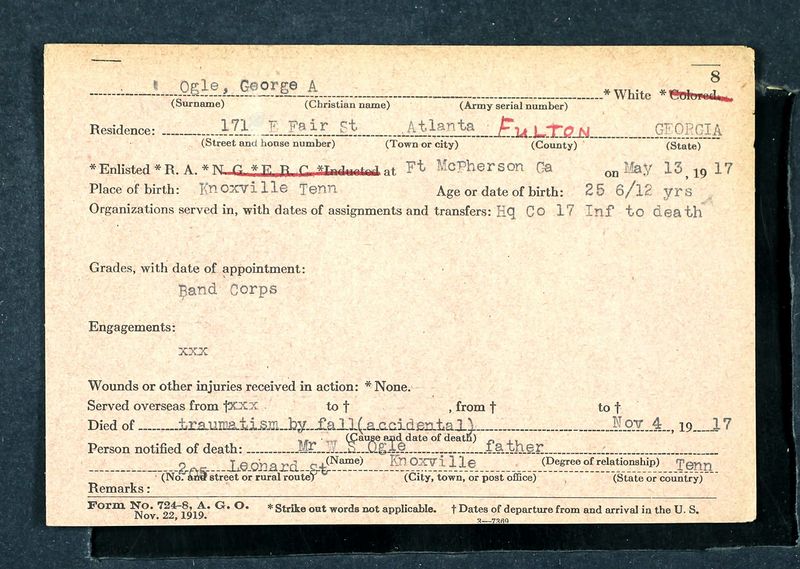 8
Ogle, George A * White * Colored.
(Surname) (Christian name) (Army serial number)
Residence: 171 E Fair St Atlanta FULTON GEORGIA
(Street and house number) (Town or city) (County) (State)
* Enlisted * R. A. * N. G. * E. R. C. * Inducted at Ft McPherson Ga on May 13, 19 17
Place of birth: Knoxville Tenn Age or date of birth: 25 6/12 yrs
Organizations served in, with dates of assignments and transfers: Hq Co 17 Inf to death
Grades, with date of appointment:
Band Corps
Engagements:
xxx
Wounds or other injuries received in action: * None.
Served overseas from † xxx to † , from † to †
Died of traumatism by fall(accidental) Nov 4 , 19 17
(Cause and date of death)
Person notified of death: Mr W S Ogle father
(Name) (Degree of relationship)
205 Leonard St Knoxville Tenn
(No. and street or rural route) (City, town, or post office) (State or country)
Remarks:
Form No. 724-8, A. G. O. * Strike out words not applicable. † Dates of departure from and arrival in the U. S.
Nov. 22, 1919. 3—7369